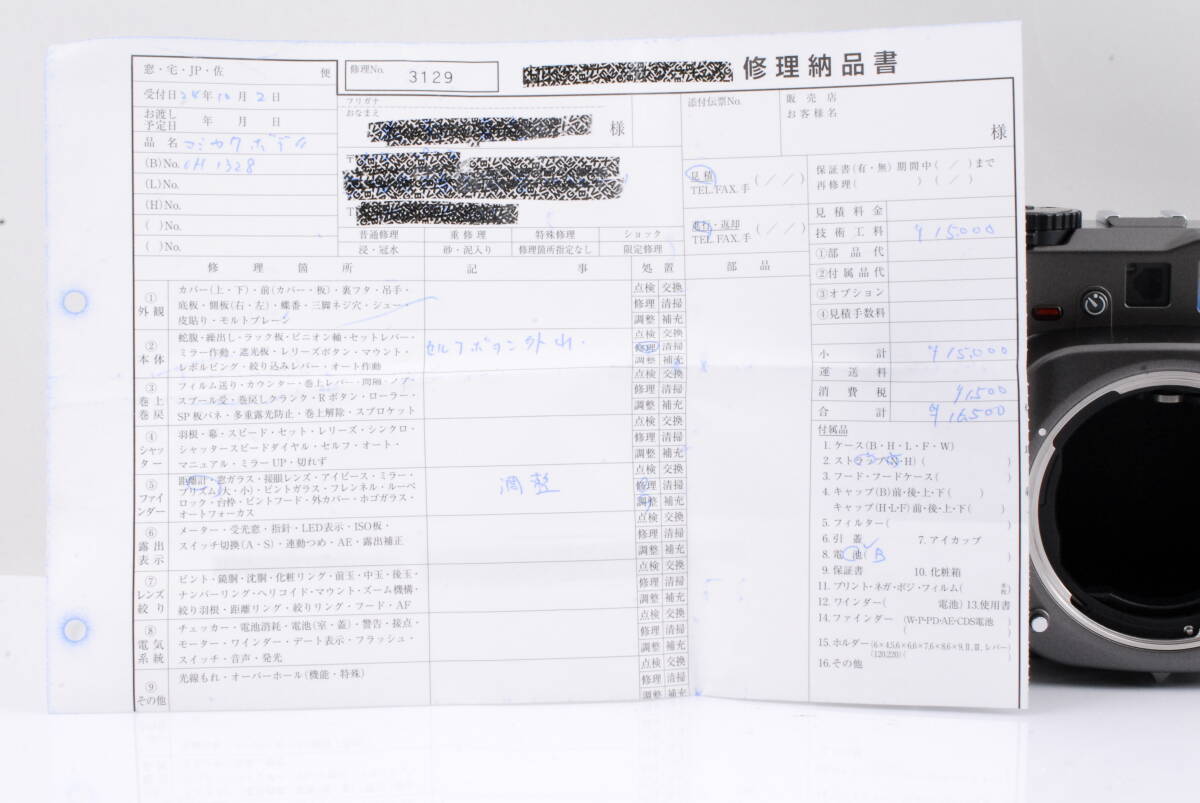 修理納品書
窓・宅・JP・佐 便
修理No. 3129
受付日 24年10月2日
お渡し予定日 年 月 日
品名 マミヤ7ボデイ
(B)No. CH1328
(L)No.
(H)No.
( )No.
( )No.
フリガナ
おなまえ 様
〒
添付伝票No.
販売店
お客様名 様
見積
TEL.FAX.手 ( / / )
進行・返却
TEL.FAX.手 ( / / )
保証書(有・無)期間中( / )まで
再修理( ) ( / )
普通修理 重修理 特殊修理 ショック
浸・冠水 砂・泥入り 修理箇所指定なし 限定修理
見積料金
技術工料 ¥15,000
①部品代
②付属品代
③オプション
④見積手数料
小計 ¥15,000
運送料
消費税 ¥1,500
合計 ¥16,500
修理箇所 記事 処置 部品
①外観
カバー(上・下)・前(カバー・板)・裏フタ・吊手・
底板・側板(右・左)・蝶番・三脚ネジ穴・シュー・
皮貼り・モルトプレーン
点検 交換
修理 清掃
調整 補充
②本体
蛇腹・繰出し・ラック板・ピニオン軸・セットレバー・
ミラー作動・遮光板・レリーズボタン・マウント・
レボルビング・絞り込みレバー・オート作動
セルフボタン外れ.
点検 交換
修理 清掃
調整 補充
③巻上巻戻
フィルム送り・カウンター・巻上レバー・間隔・ノブ・
スプール受・巻戻しクランク・Rボタン・ローラー・
SP板バネ・多重露光防止・巻上解除・スプロケット
点検 交換
修理 清掃
調整 補充
④シャッター
羽根・幕・スピード・セット・レリーズ・シンクロ・
シャッタースピードダイヤル・セルフ・オート・
マニュアル・ミラーUP・切れず
点検 交換
修理 清掃
調整 補充
⑤ファインダー
距離計・窓ガラス・接眼レンズ・アイピース・ミラー・
プリズム(大・小)・ピントガラス・フレンネル・ルーペ
ロック・台枠・ピントフード・外カバー・ホゴガラス・
オートフォーカス
調整
点検 交換
修理 清掃
調整 補充
⑥露出表示
メーター・受光窓・指針・LED表示・ISO板・
スイッチ切換(A・S)・連動つめ・AE・露出補正
点検 交換
修理 清掃
調整 補充
⑦レンズ絞り
ピント・鏡胴・沈胴・化粧リング・前玉・中玉・後玉・
ナンバーリング・ヘリコイド・マウント・ズーム機構・
絞り羽根・距離リング・絞りリング・フード・AF
点検 交換
修理 清掃
調整 補充
⑧電気系統
チェッカー・電池消耗・電池(室・蓋)・警告・接点・
モーター・ワインダー・デート表示・フラッシュ・
スイッチ・音声・発光
点検 交換
修理 清掃
調整 補充
⑨その他
光線もれ・オーバーホール(機能・特殊)
点検 交換
修理 清掃
調整 補充
付属品
1. ケース(B・H・L・F・W)
2. ストラップ(N・H) ( )
3. フード・フードケース( )
4. キャップ(B)前・後・上・下( )
キャップ(H・L・F)前・後・上・下( )
5. フィルター( )
6. 引蓋 7. アイカップ
8. 電池( B )
9. 保証書 10. 化粧箱
11. プリント・ネガ・ポジ・フィルム( )
12. ワインダー( 電池) 13. 使用書
14. ファインダー (W・P・PD・AE・CDS電池 )
15. ホルダー(6×4.5,6×6,6×7,6×8,6×9,Ⅱ,Ⅲ, レバー)
(120,220) ( )
16. その他